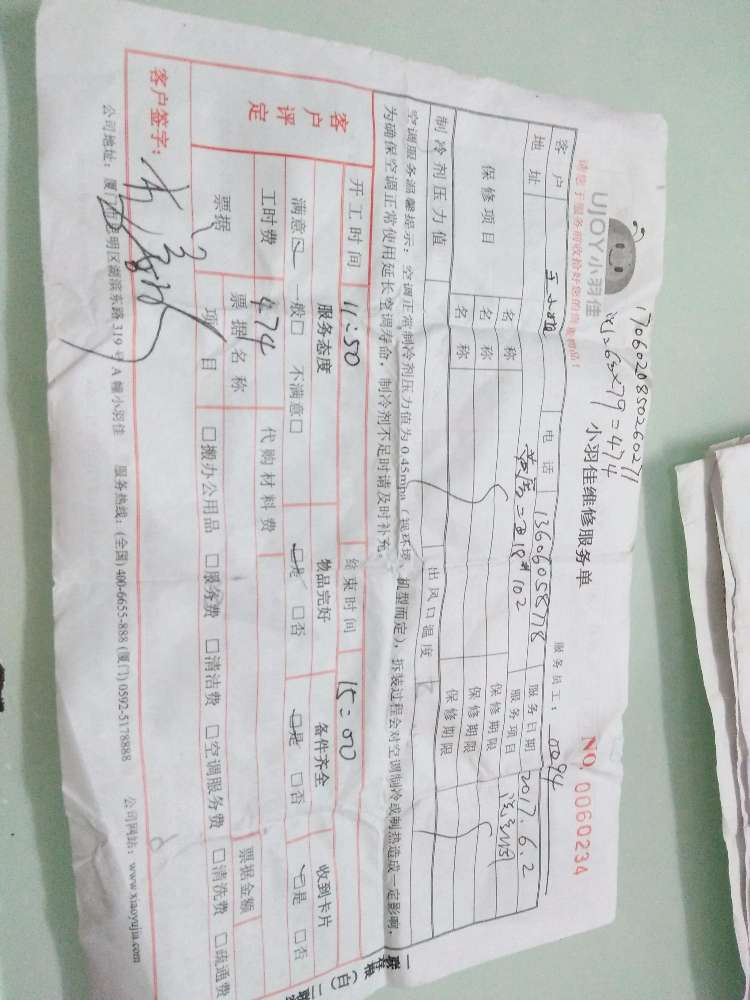 17060208502602711
UJOY小羽佳
小羽佳维修服务单
NO. 0060234
请您于服务前收拾好您的贵重物品!
服务员工: 0094
客户 电话 13606058778 服务日期 2017.6.2
地址 服务项目
保修项目 名称 保修期限
名称 保修期限
名称 保修期限
制冷剂压力值 出风口温度
空调服务温馨提示:空调正常制冷剂压力值为0.45mpa(视环境、机型而定),拆装过程会对空调制冷或制热造成一定影响,
为确保空调正常使用延长空调寿命,制冷剂不足时请及时补充。
开工时间 11:50 结束时间 15:00
客户评定 服务态度 物品完好 备件齐全 收到卡片
满意☑ 一般□ 不满意□ ☑是 □否 ☑是 □否 ☑是 □否
工时费 474 代购材料费
票据 票据名称 票据金额
项目 □搬办公用品 □服务费 □清洁费 □空调服务费 □清洗费 □疏通费
客户签字:
公司地址:厦门市思明区湖滨东路319号A幢小羽佳 服务热线:(全国)400-6655-888(厦门)0592-5178888 公司网站:www.xiaoyujia.com